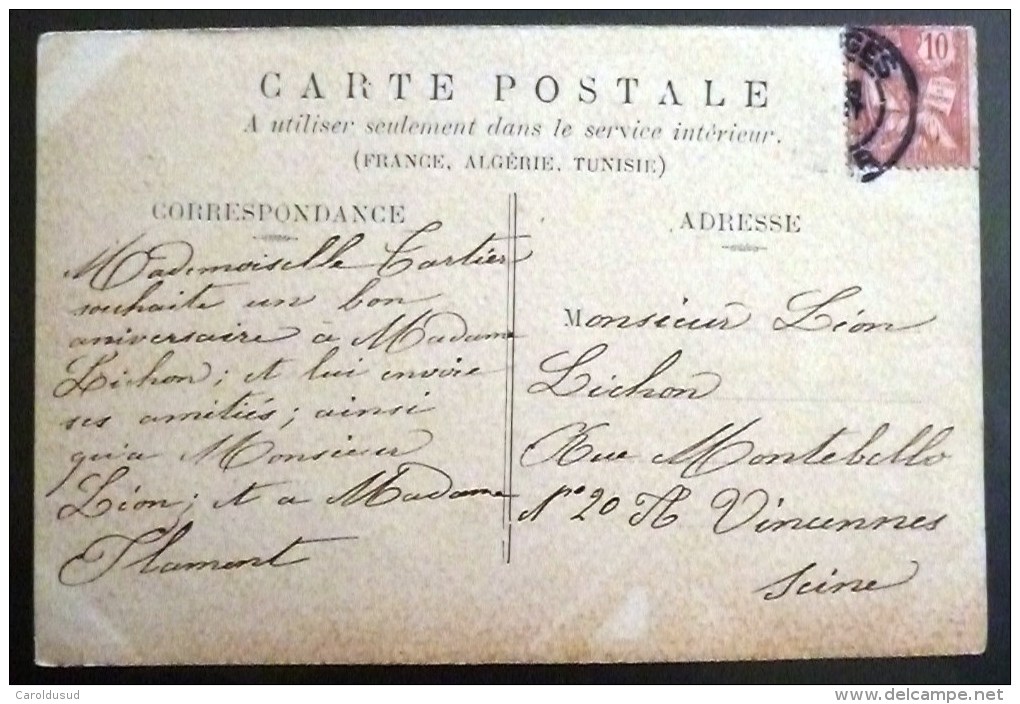 10
GES
CARTE POSTALE
A utiliser seulement dans le service intérieur.
(FRANCE, ALGÉRIE, TUNISIE)
CORRESPONDANCE
Mademoiselle Cartier
souhaite un bon
aniversaire à Madame
Lichon; et lui envoie
ses amitiés; ainsi
qu'a Monsieur
Léon; et a Madame
Flament
ADRESSE
Monsieur Léon
Lichon
Rue Montebello
No 20 A Vincennes
Seine
Caroldusud
www.delcampe.net